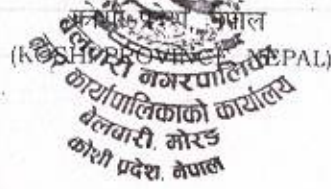 कोशी प्रदेश, नेपाल
(KOSHI PROVINCE, NEPAL)
बेलवारी नगरपालिका
नगर कार्यपालिकाको कार्यालय
बेलवारी, मोरङ
कोशी प्रदेश, नेपाल